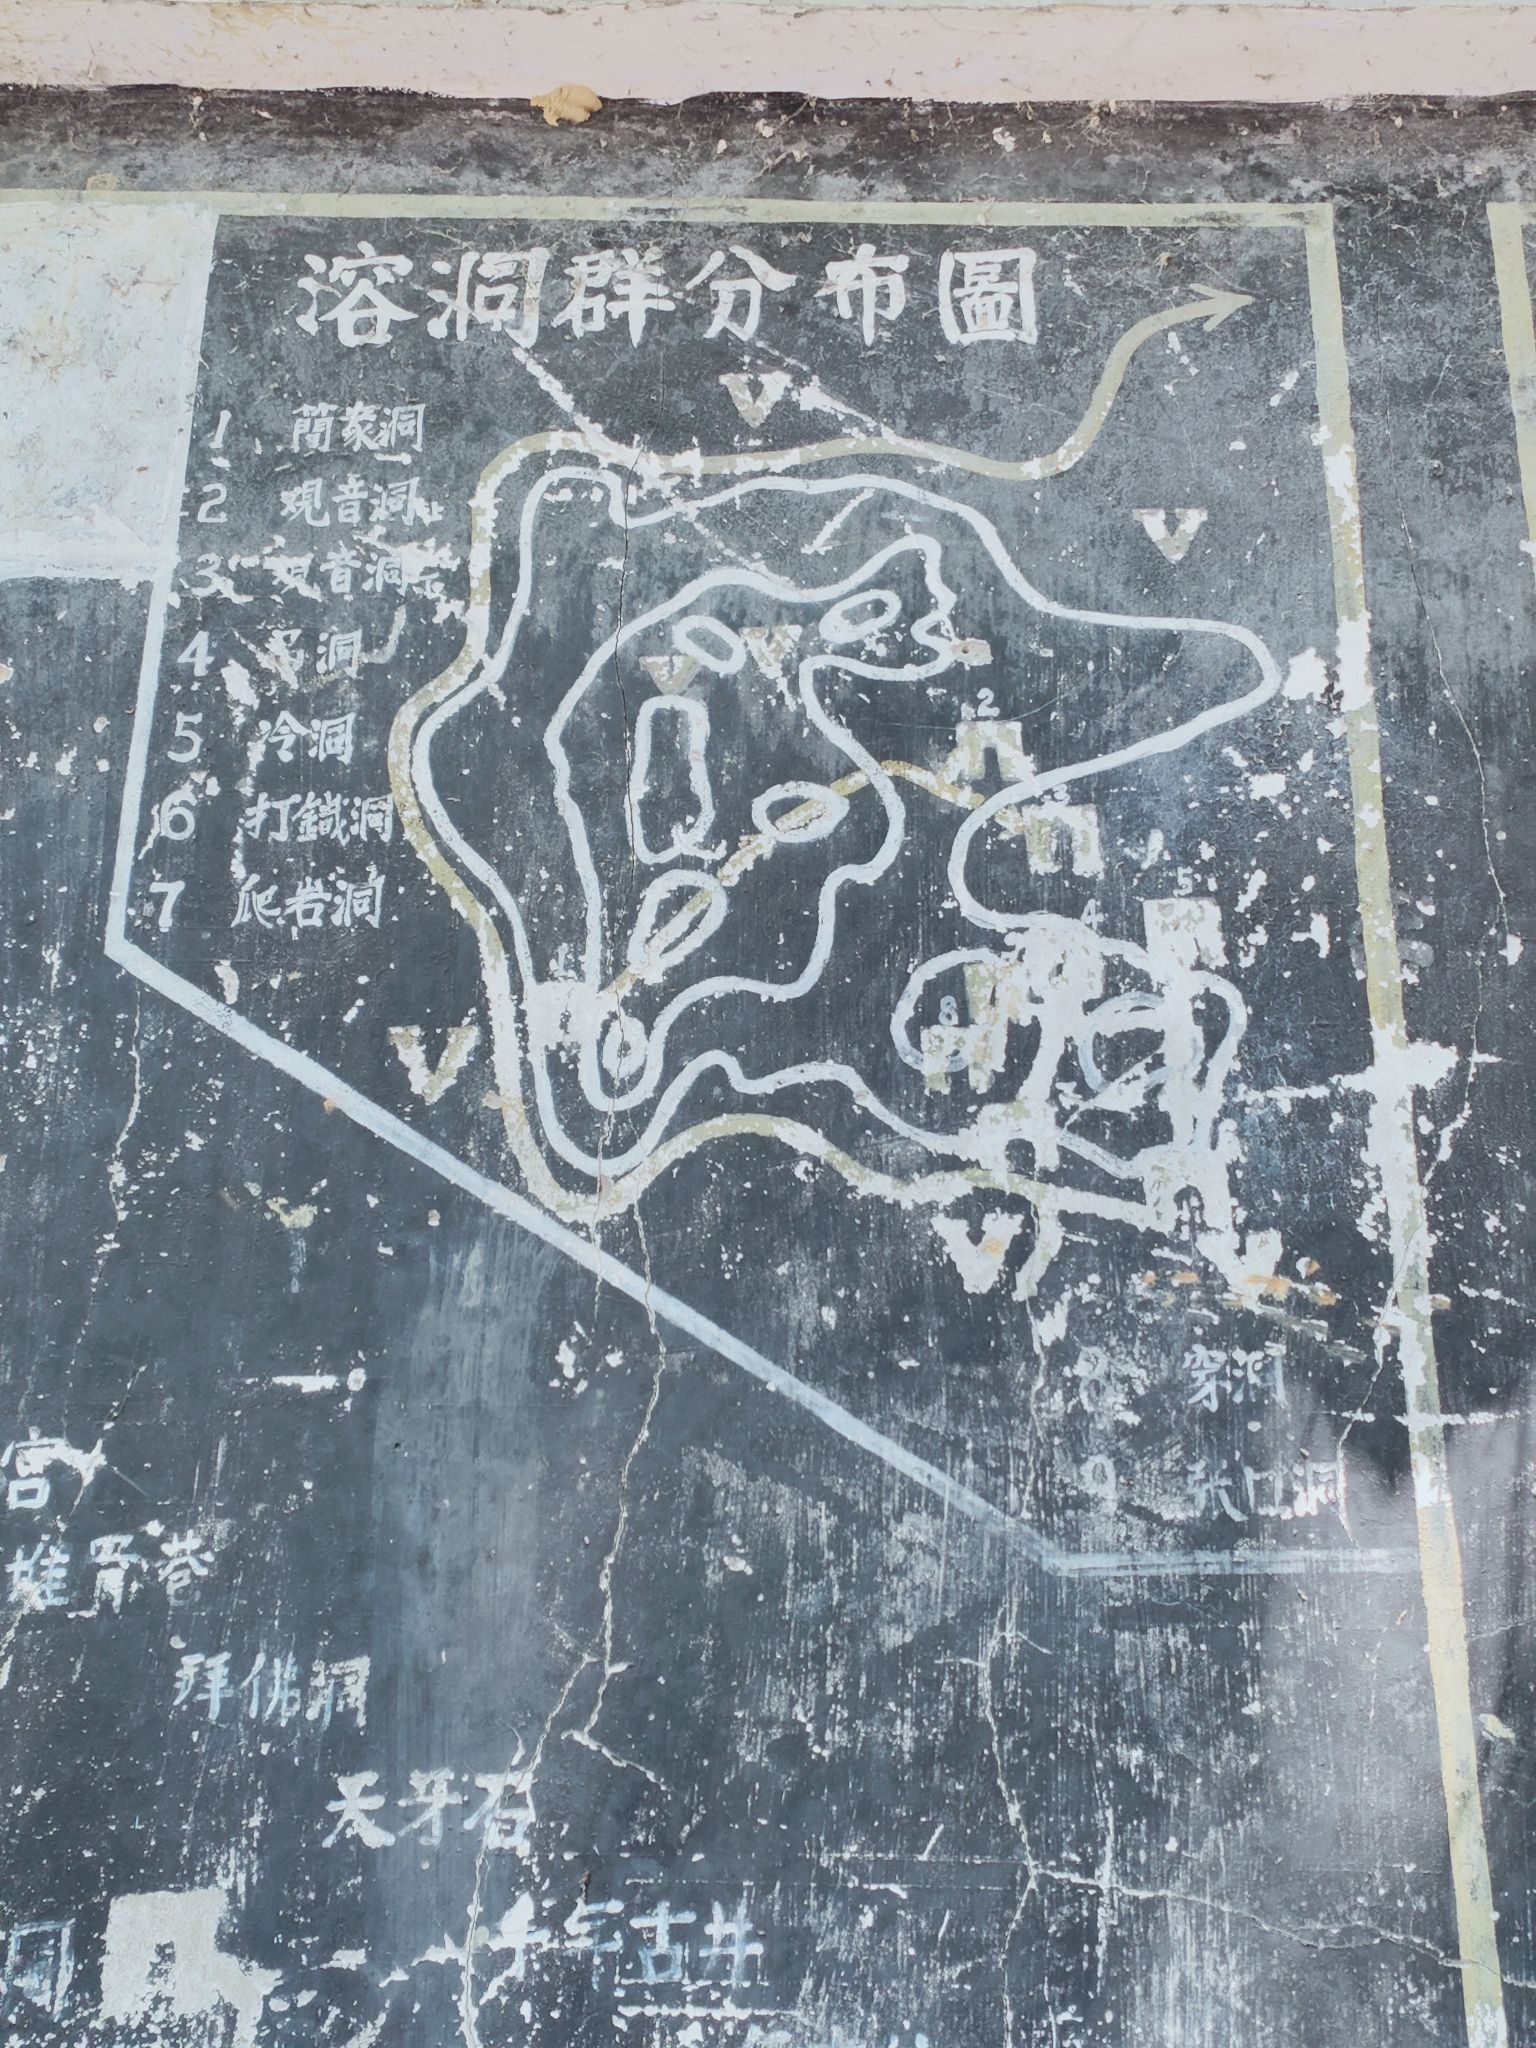 溶洞群分布圖
1 簡家洞
2 观音洞上
3 观音洞下
4 吊洞
5 冷洞
6 打鐵洞
7 爬岩洞
V
V
V
V
V
V
V
2
3
4
5
8
6
8 穿洞
9 张口洞
宫
堆骨巷
拜佛洞
天牙石
千年古井
洞